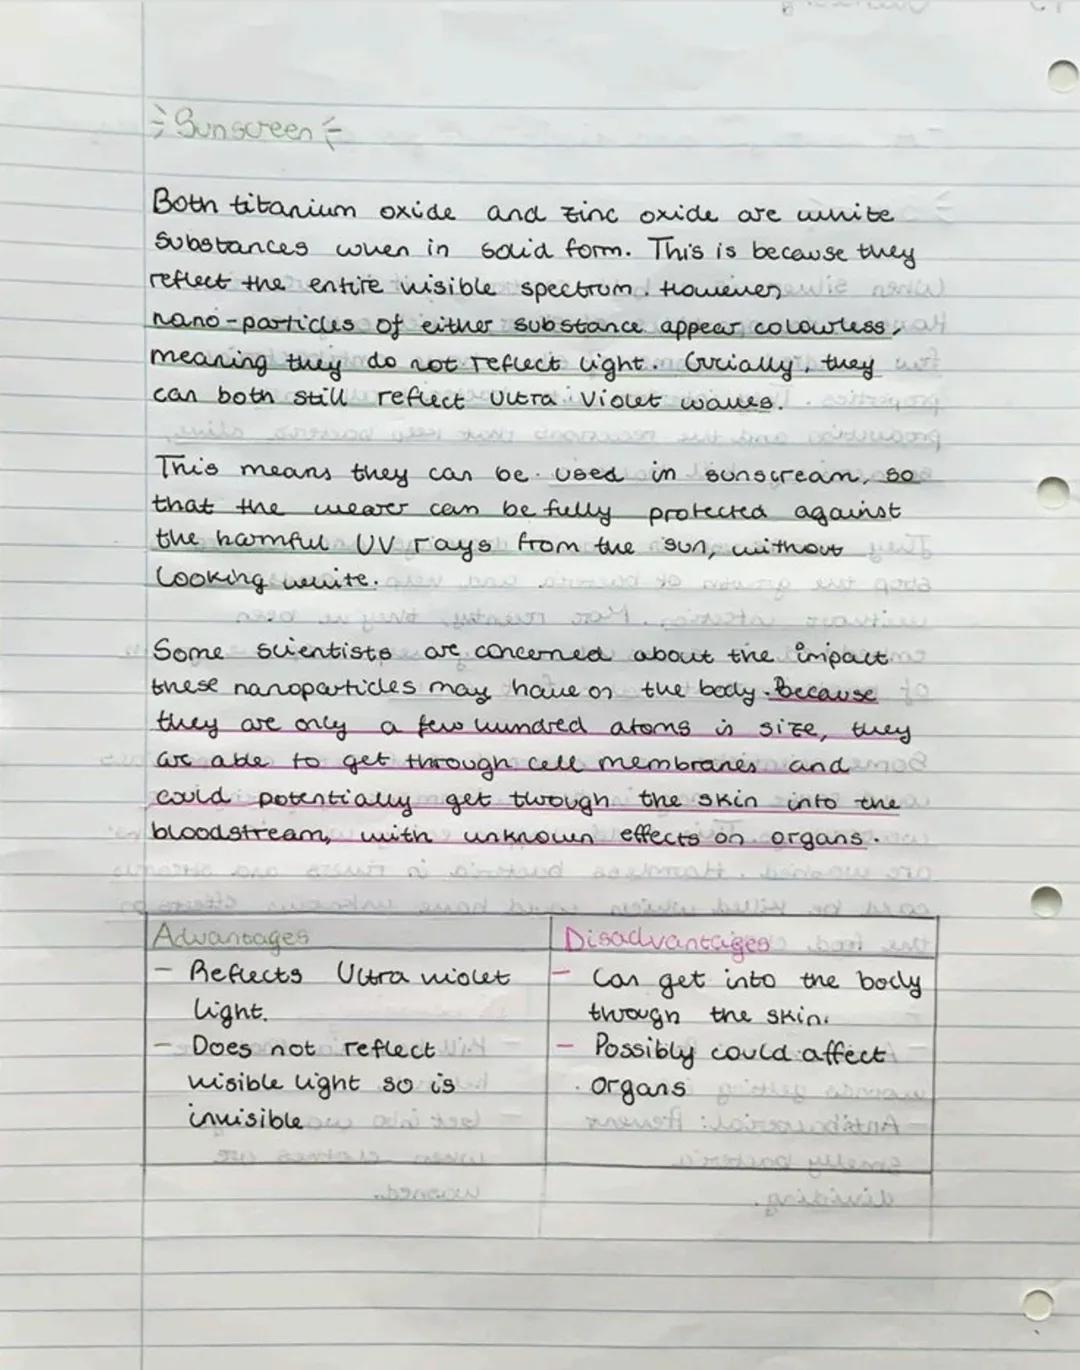 Sunscreen
Both titanium oxide and zinc oxide are white
substances when in solid form. This is because they
reflect the entire visible spectrum. However,
nano-particles of either substance appear colourless,
meaning they do not reflect light. Crucially, they
can both still reflect Ultra Violet waves.
This means they can be used in sunscream, so
that the wearer can be fully protected against
the harmful UV rays from the sun, without
looking white.
Some scientists are concerned about the impact
these nanoparticles may have on the body. Because
they are only a few hundred atoms in size, they
are able to get through cell membranes and
could potentially get through the skin into the
bloodstream, with unknown effects on organs.
Advantages
- Reflects Ultra violet
light.
- Does not reflect
visible light so is
invisible
Disadvantages
- Can get into the body
through the skin.
- Possibly could affect
organs